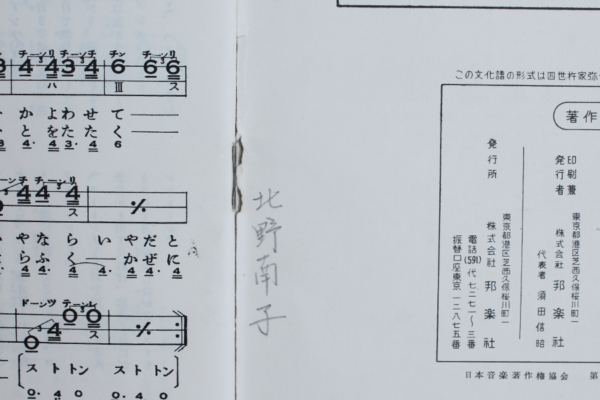 チーンリ チーンチ チン チーンリ
3 4 4 3 4 6 6 6
ハ Ⅲ ス
か よわせて
と をたたく
3 4・ 3・ 4 6
4 4 4
ス
やなら いやだと
らふく かぜに
4 4 4 4 4 4
ドーンツ テーンレ
0 4 0 0
ス
ストトン ストトン
0・ 4 0 0・ 4 0
北野南子
この文化譜の形式は四世杵家弥
著作
印刷兼
発行者
東京都港区芝西久保桜川町一
株式会社 邦楽社
代表者 須田信昭
発行所
東京都港区芝西久保桜川町一
株式会社 邦楽社
電話(591)代七二七一〜三番
振替口座東京一二八七五番
日本音楽著作権協会 第